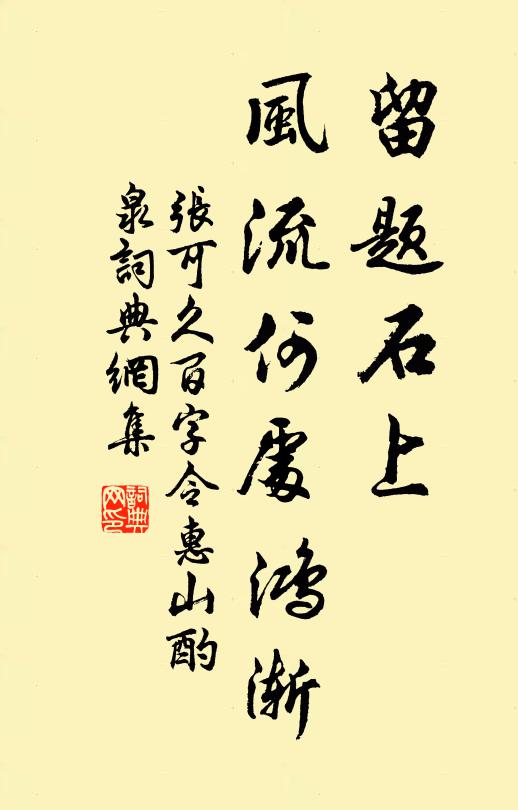 留题石上
風流何處鴻渐
張可久百字令惠山酌
泉詞典網集
詞典
网印